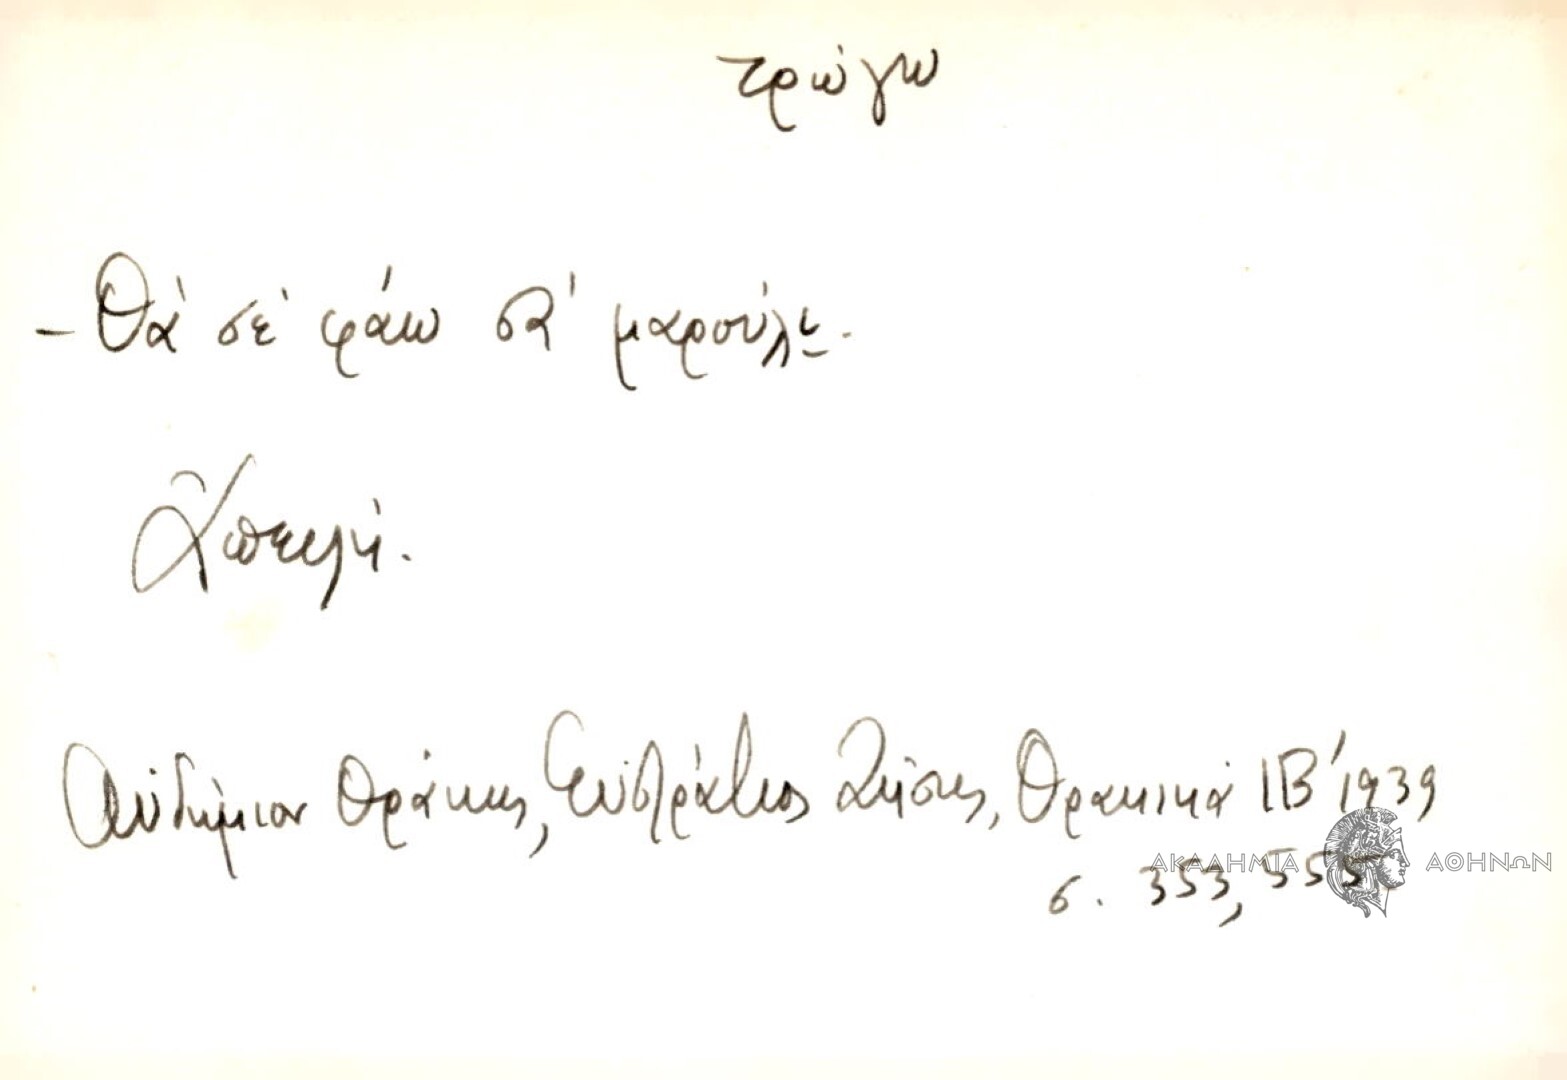 τρώγω
- Θὰ σὲ φάω σὰ μαρούλι.
Ἀπειλή.
Αὐδήμιον Θράκης, Εὐστράτιος Ζήσης, Θρακικά ΙΒ' 1939
σ. 353, 555
ΑΚΑΔΗΜΙΑ ΑΘΗΝΩΝ